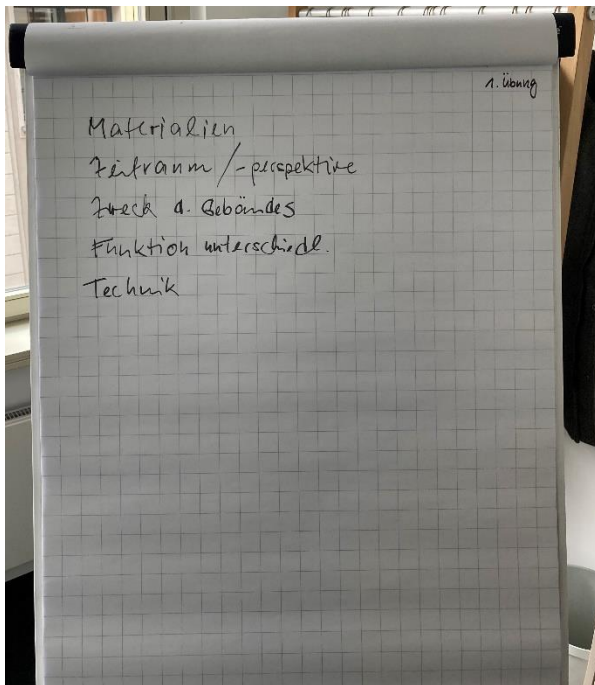 1. Übung
Materialien
Zeitraum / -perspektive
Zweck d. Gebäudes
Funktion unterschiedl.
Technik